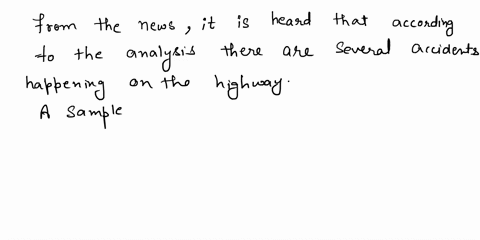 from the news, it is heard that according
to the analysis there are several accidents
happening on the highway.
A sample